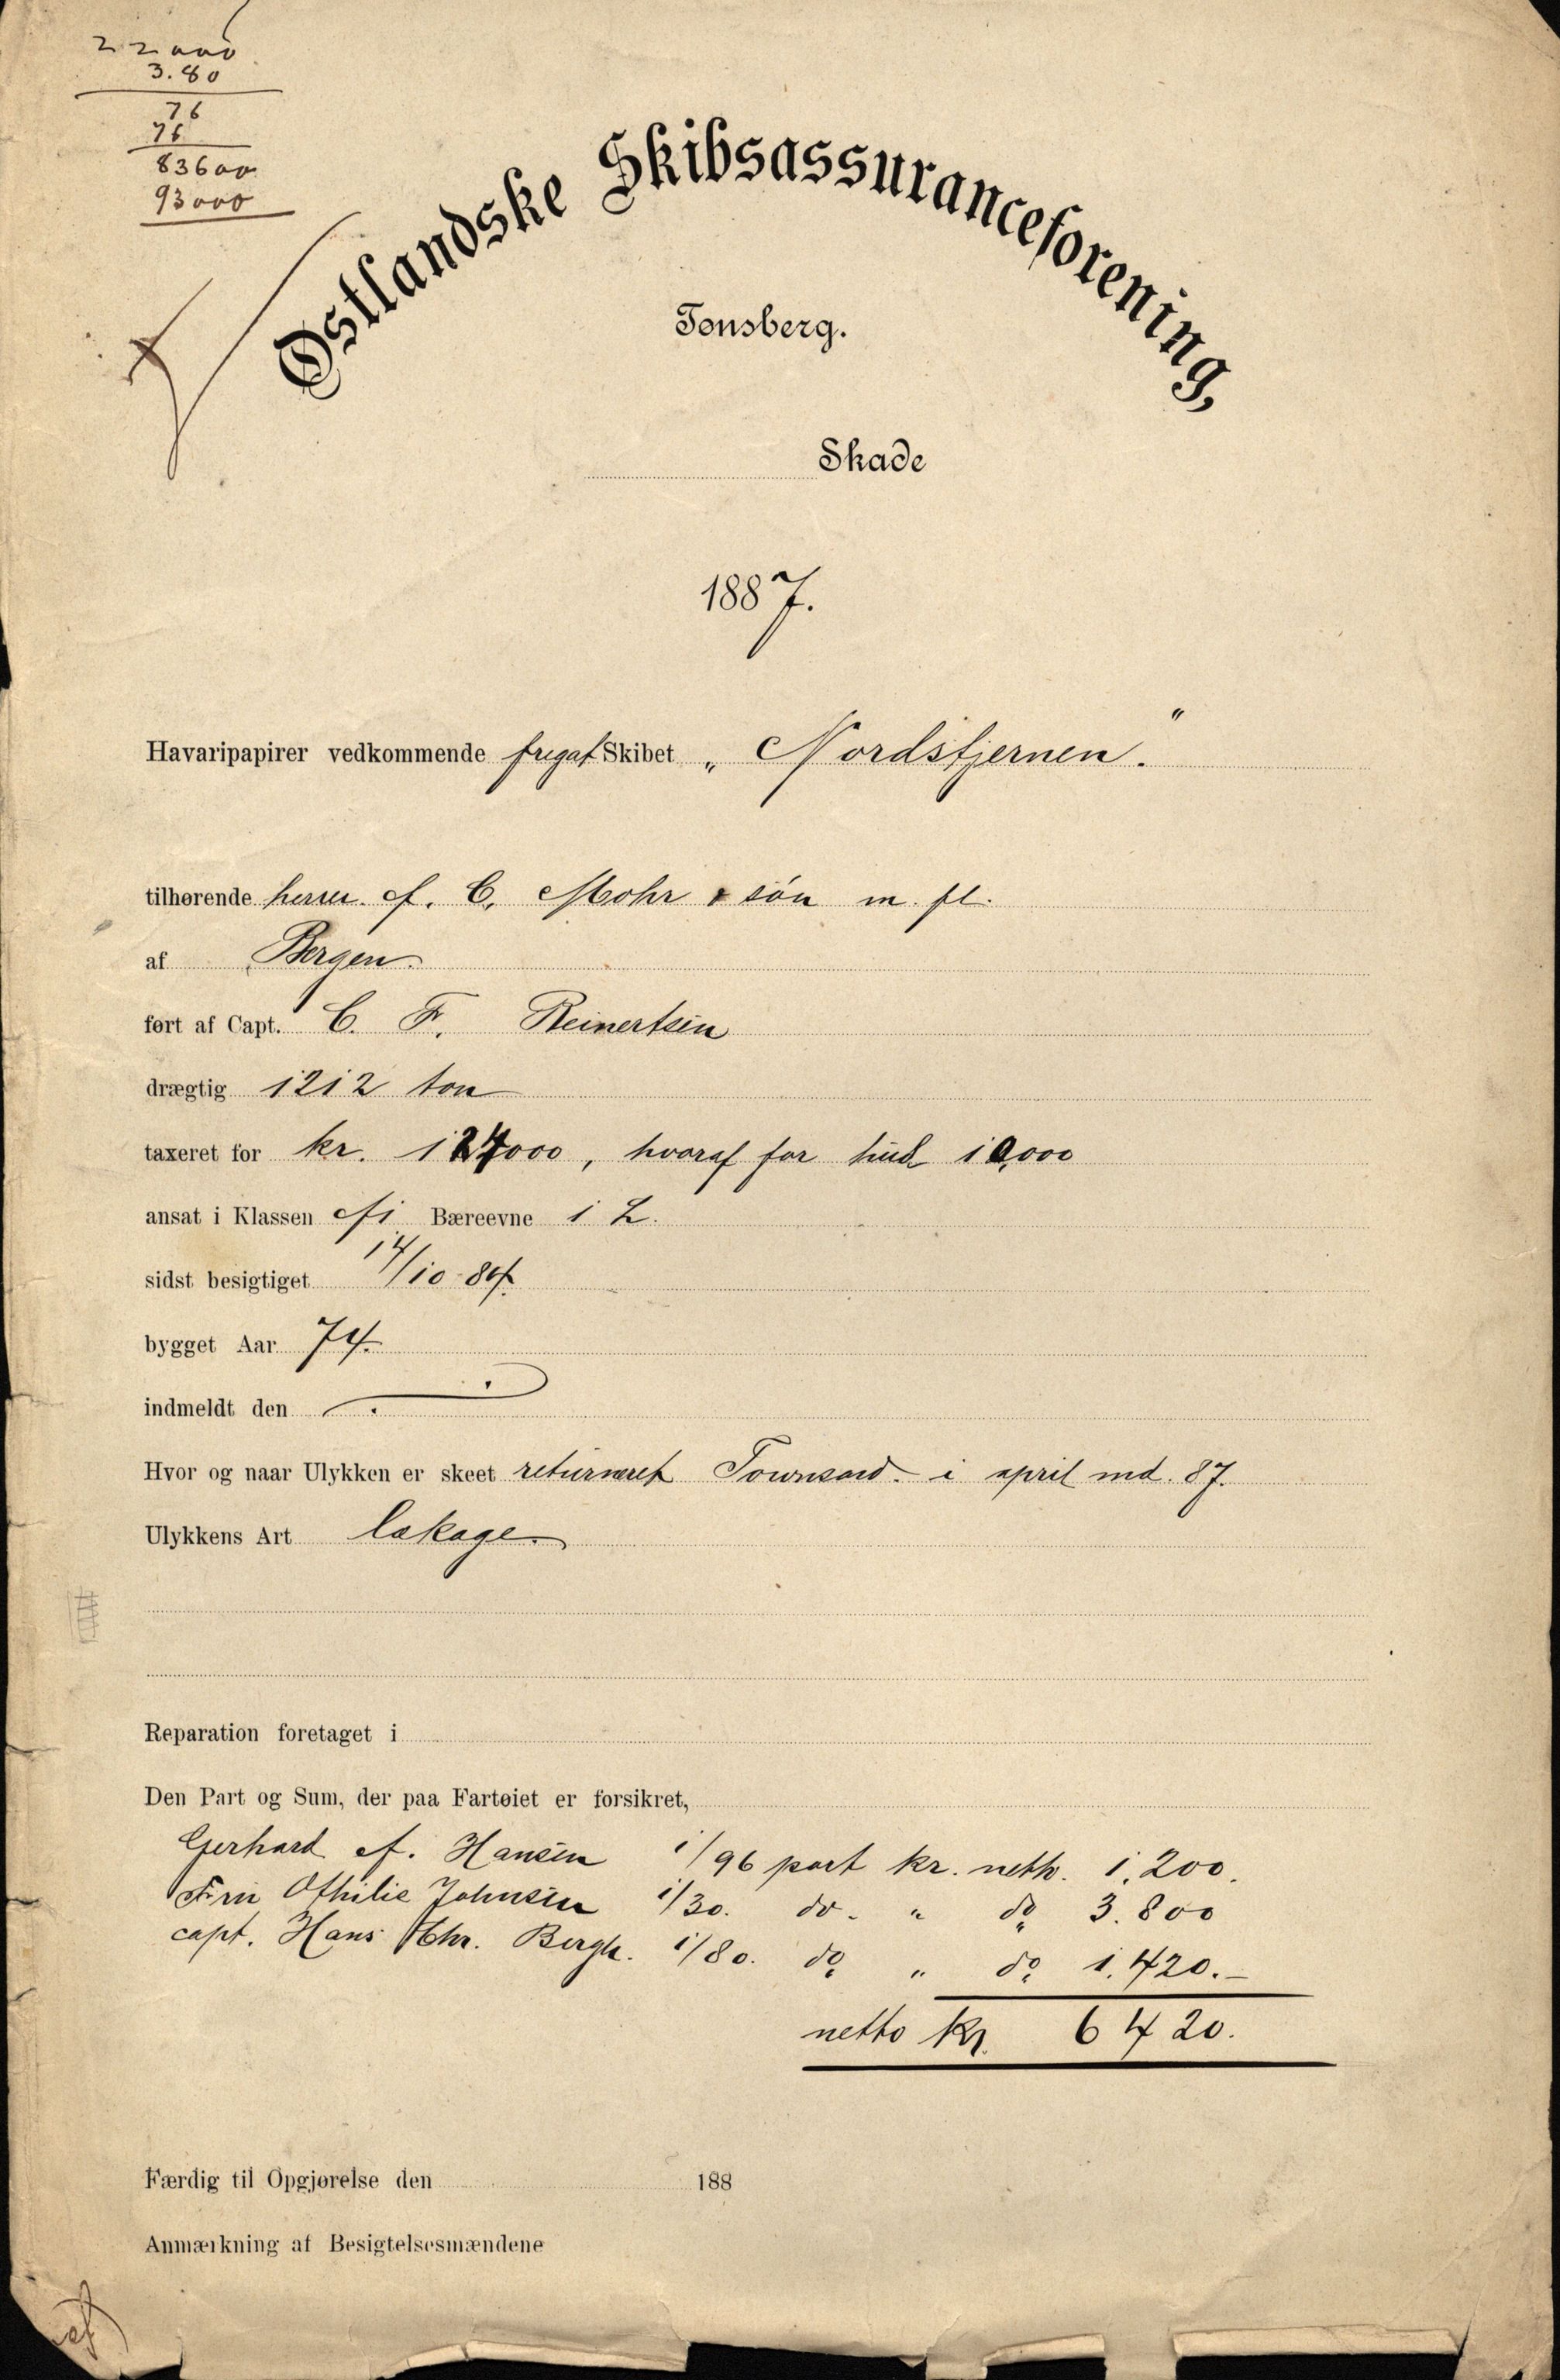 22000
3.80
76
76
83600
93000
Østlandske Skibsassuranceforening,
Tønsberg.
Skade
1887.
Havaripapirer vedkommende fregat Skibet „Nordstjernen."
tilhørende herrer A. C. Mohr & søn m. fl.
af Bergen.
ført af Capt. C. F. Reinertsen
drægtig 1212 ton
taxeret for kr. 124000, hvoraf for hud 10,000
ansat i Klassen A1 Bæreevne 1 L.
sidst besigtiget 14/10-84.
bygget Aar 74.
indmeldt den
Hvor og naar Ulykken er skeet returneret i april md. 87.
Ulykkens Art lækage.
Reparation foretaget i
Den Part og Sum, der paa Fartøiet er forsikret,
Gerhard A. Hansen 1/96 part kr. netto. 1.200.
Fru Othilie Johnsen 1/30. do. " do 3.800
capt. Hans Chr. Bergh. 1/80. do " do 1.420.-
netto kr. 6420.
Færdig til Opgjørelse den 188
Anmærkning af Besigtelsesmændene